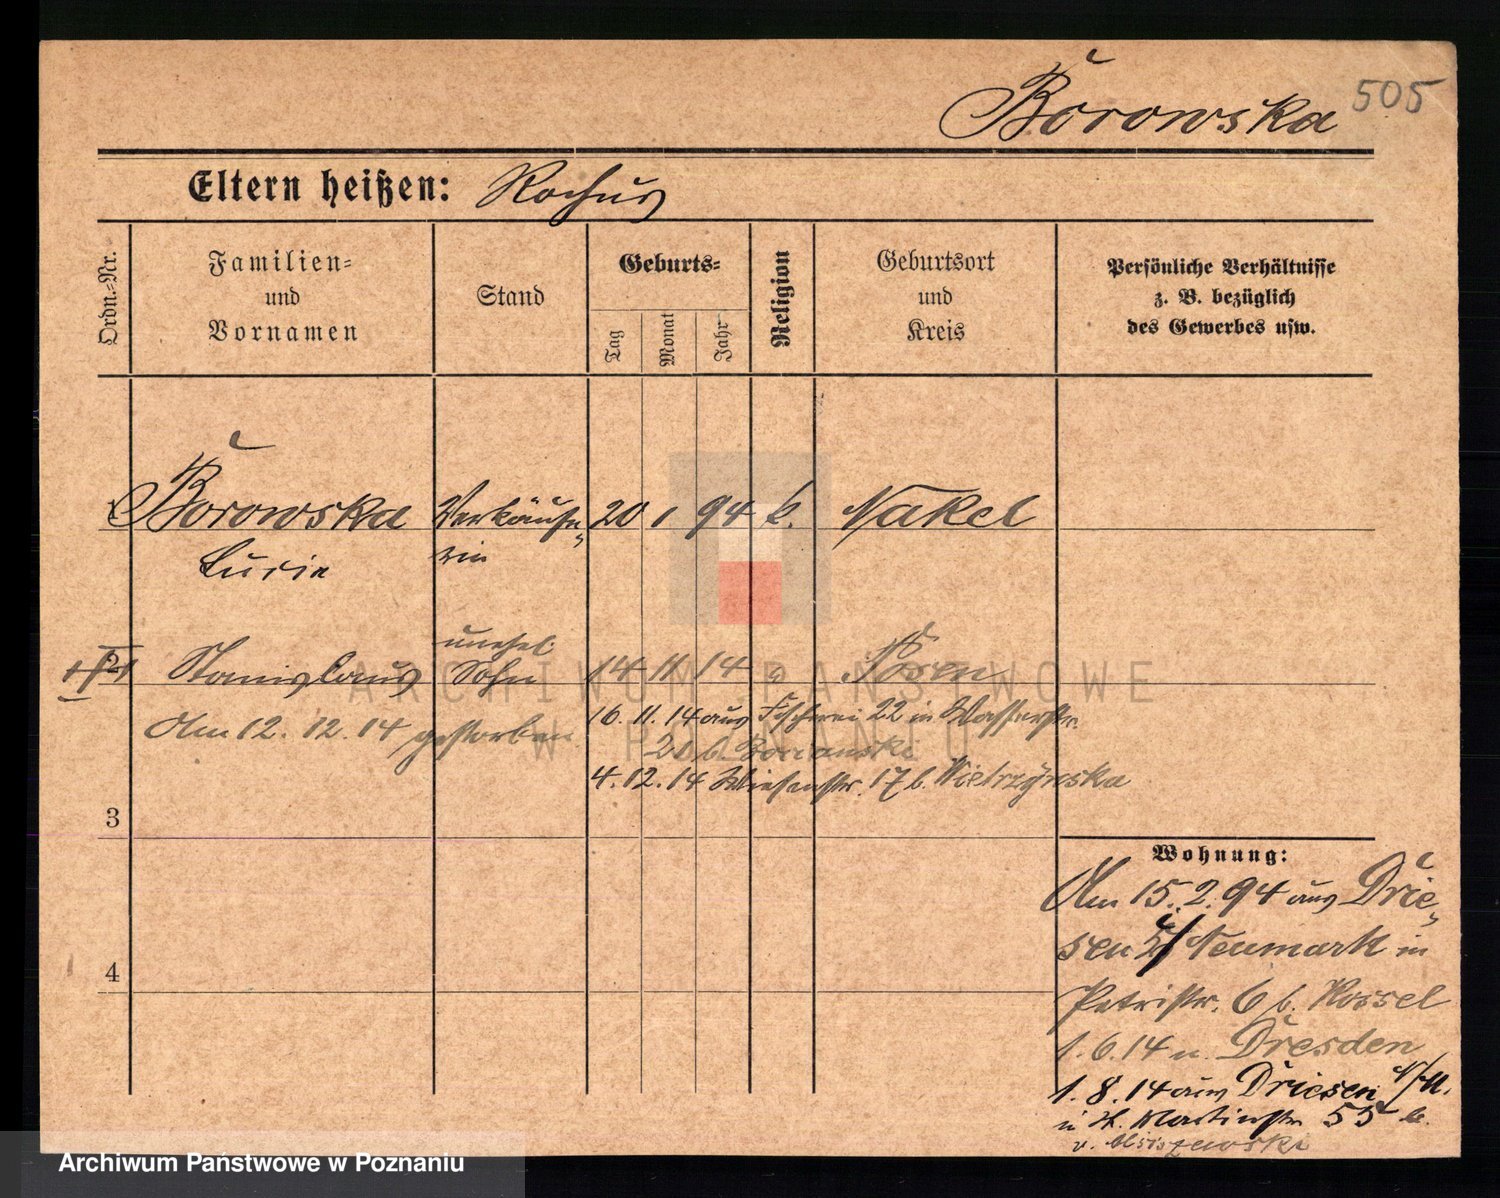 Borowska 505
Eltern heißen: Rochus
Ordn.-Nr.
Familien-
und
Vornamen
Stand
Geburts-
Tag
Monat
Jahr
Religion
Geburtsort
und
Kreis
Persönliche Verhältnisse
z. B. bezüglich
des Gewerbes usw.
1 Borowska Verkäufe- 20 1 94 k. Nakel
Lucia rin
unehel.
2 Stanislaus Sohn 14 11 14 Posen
Am 12. 12. 14 gestorben
16. 11. 14 aus Fischerei 22 in Wasserstr.
4. 12. 14 Wiesenstr. 17 b. Wietrzynska
3
4
Wohnung:
Am 15. 2. 94 aus Drie-
sen Neumark in
Petristr. 6 b. Kossel
1. 6. 14 n. Dresden
1. 8. 14 aus Driesen N/M.
in St. Martinstr. 55 b.
ARCHIWUM PAŃSTWOWE
W POZNANIU
Archiwum Państwowe w Poznaniu